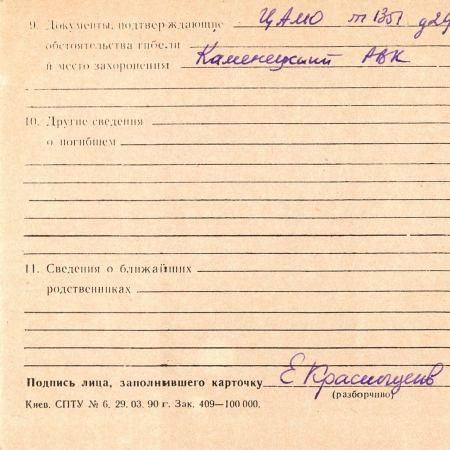 9. Документы, подтверждающие ЦАМО т 1351 д 29
обстоятельства гибели
и место захоронения Каменецкий РВК
10. Другие сведения
о погибшем
11. Сведения о ближайших
родственниках
Подпись лица, заполнившего карточку Е
(разборчиво)
Киев. СПТУ № 6. 29. 03. 90 г. Зак. 409—100 000.